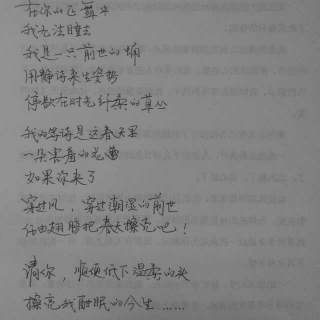 在你的飞舞中
我无法睡去
我是一只前世的蛹
用静待来坐势
停歇在时光针柔的草丛
我的等待是这春天里
一朵害羞的花蕾
如果你来了
穿过风，穿过潮湿的前世
任由翅膀把春天擦亮吧！
请你，顺便低下温柔的头
擦亮我酣眠的今生……